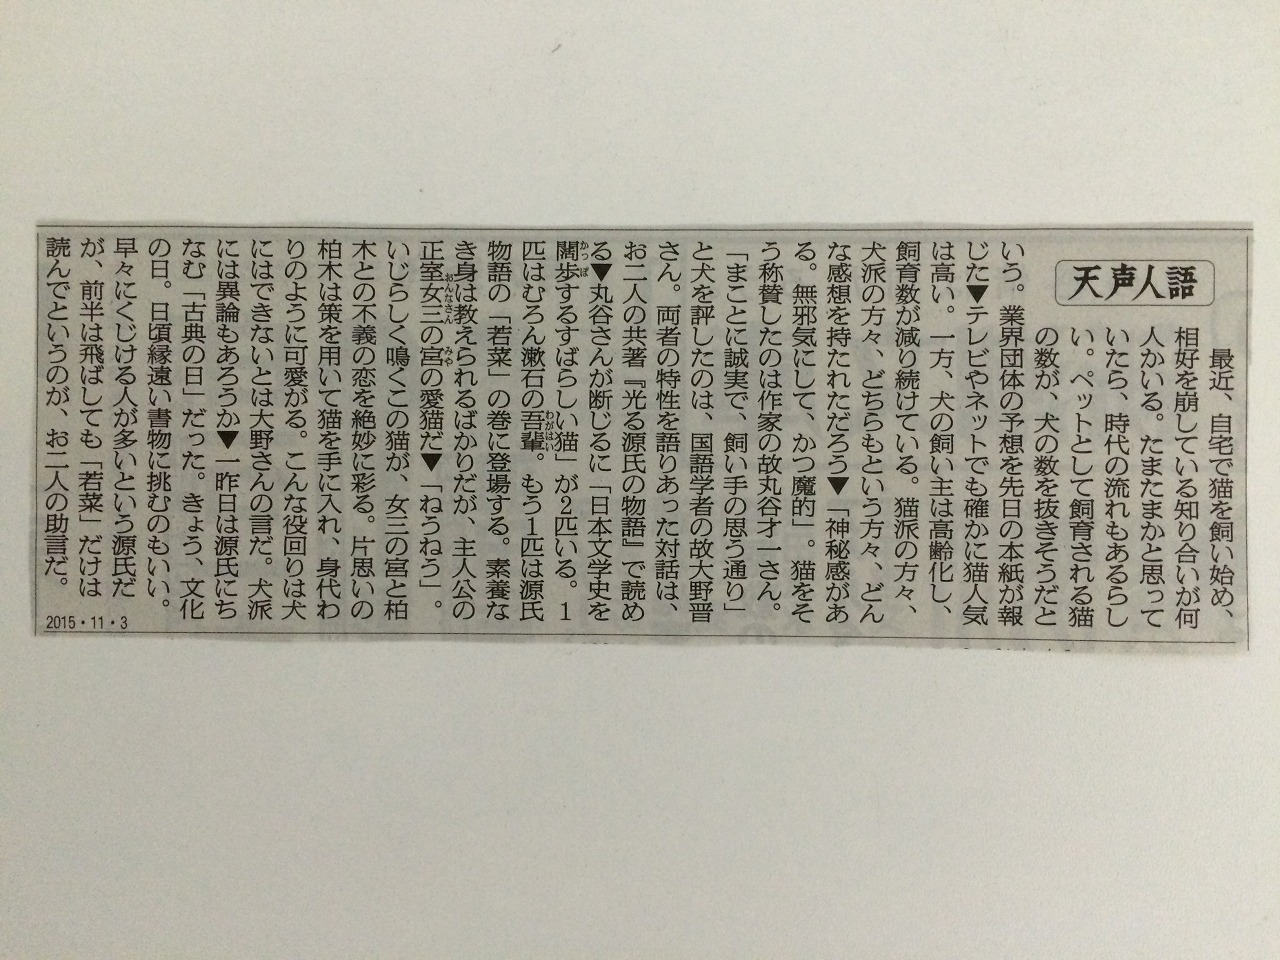 天声人語
最近、自宅で猫を飼い始め、
相好を崩している知り合いが何
人かいる。たまたまかと思って
いたら、時代の流れもあるらし
い。ペットとして飼育される猫
の数が、犬の数を抜きそうだと
いう。業界団体の予想を先日の本紙が報
じた▼テレビやネットでも確かに猫人気
は高い。一方、犬の飼い主は高齢化し、
飼育数が減り続けている。猫派の方々、
犬派の方々、どちらもという方々、どん
な感想を持たれただろう▼「神秘感があ
る。無邪気にして、かつ魔的」。猫をそ
う称賛したのは作家の故丸谷才一さん。
「まことに誠実で、飼い手の思う通り」
と犬を評したのは、国語学者の故大野晋
さん。両者の特性を語りあった対話は、
お二人の共著『光る源氏の物語』で読め
る▼丸谷さんが断じるに「日本文学史を
闊歩するすばらしい猫」が2匹いる。1
匹はむろん漱石の吾輩。もう1匹は源氏
物語の「若菜」の巻に登場する。素養な
き身は教えられるばかりだが、主人公の
正室女三の宮の愛猫だ▼「ねうねう」。
いじらしく鳴くこの猫が、女三の宮と柏
木との不義の恋を絶妙に彩る。片思いの
柏木は策を用いて猫を手に入れ、身代わ
りのように可愛がる。こんな役回りは犬
にはできないとは大野さんの言だ。犬派
には異論もあろうか▼一昨日は源氏にち
なむ「古典の日」だった。きょう、文化
の日。日頃縁遠い書物に挑むのもいい。
早々にくじける人が多いという源氏だ
が、前半は飛ばしても「若菜」だけは
読んでというのが、お二人の助言だ。
2015・11・3